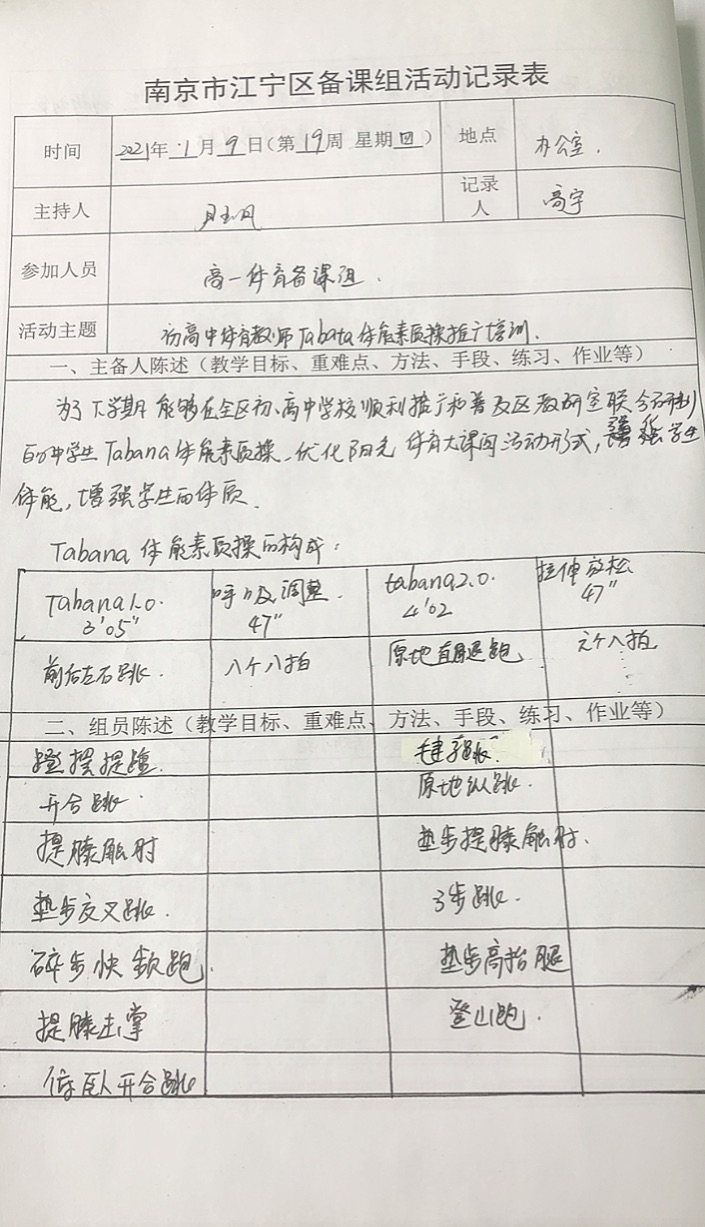 南京市江宁区备课组活动记录表
时间 2021年 1月 9日（第19周 星期四） 地点 办公室.
主持人 记录人 高宇
参加人员 高一体育备课组.
活动主题 初高中体育教师Tabata体能素质操推广培训.
一、主备人陈述（教学目标、重难点、方法、手段、练习、作业等）
为了下学期能够在全区初、高中学校顺利推广和普及区教研室联合研制
的中学生Tabana体能素质操、优化阳光体育大课间活动形式，学生
体能，增强学生的体质.
Tabana体能素质操的构成：
Tabana1.0. 3'05" 呼吸调整. 47" tabana2.0. 4'02 拉伸放松 47"
前后左右跳. 八个八拍 原地直腿跑 六个八拍
二、组员陈述（教学目标、重难点、方法、手段、练习、作业等）
蹬摆提膝. 跳.
开合跳. 原地纵跳.
提膝触肘 垫步提膝触肘.
垫步交叉跳. 3步跳.
碎步快频跑. 垫步高抬腿
提膝击掌 登山跑.
俯卧开合跳